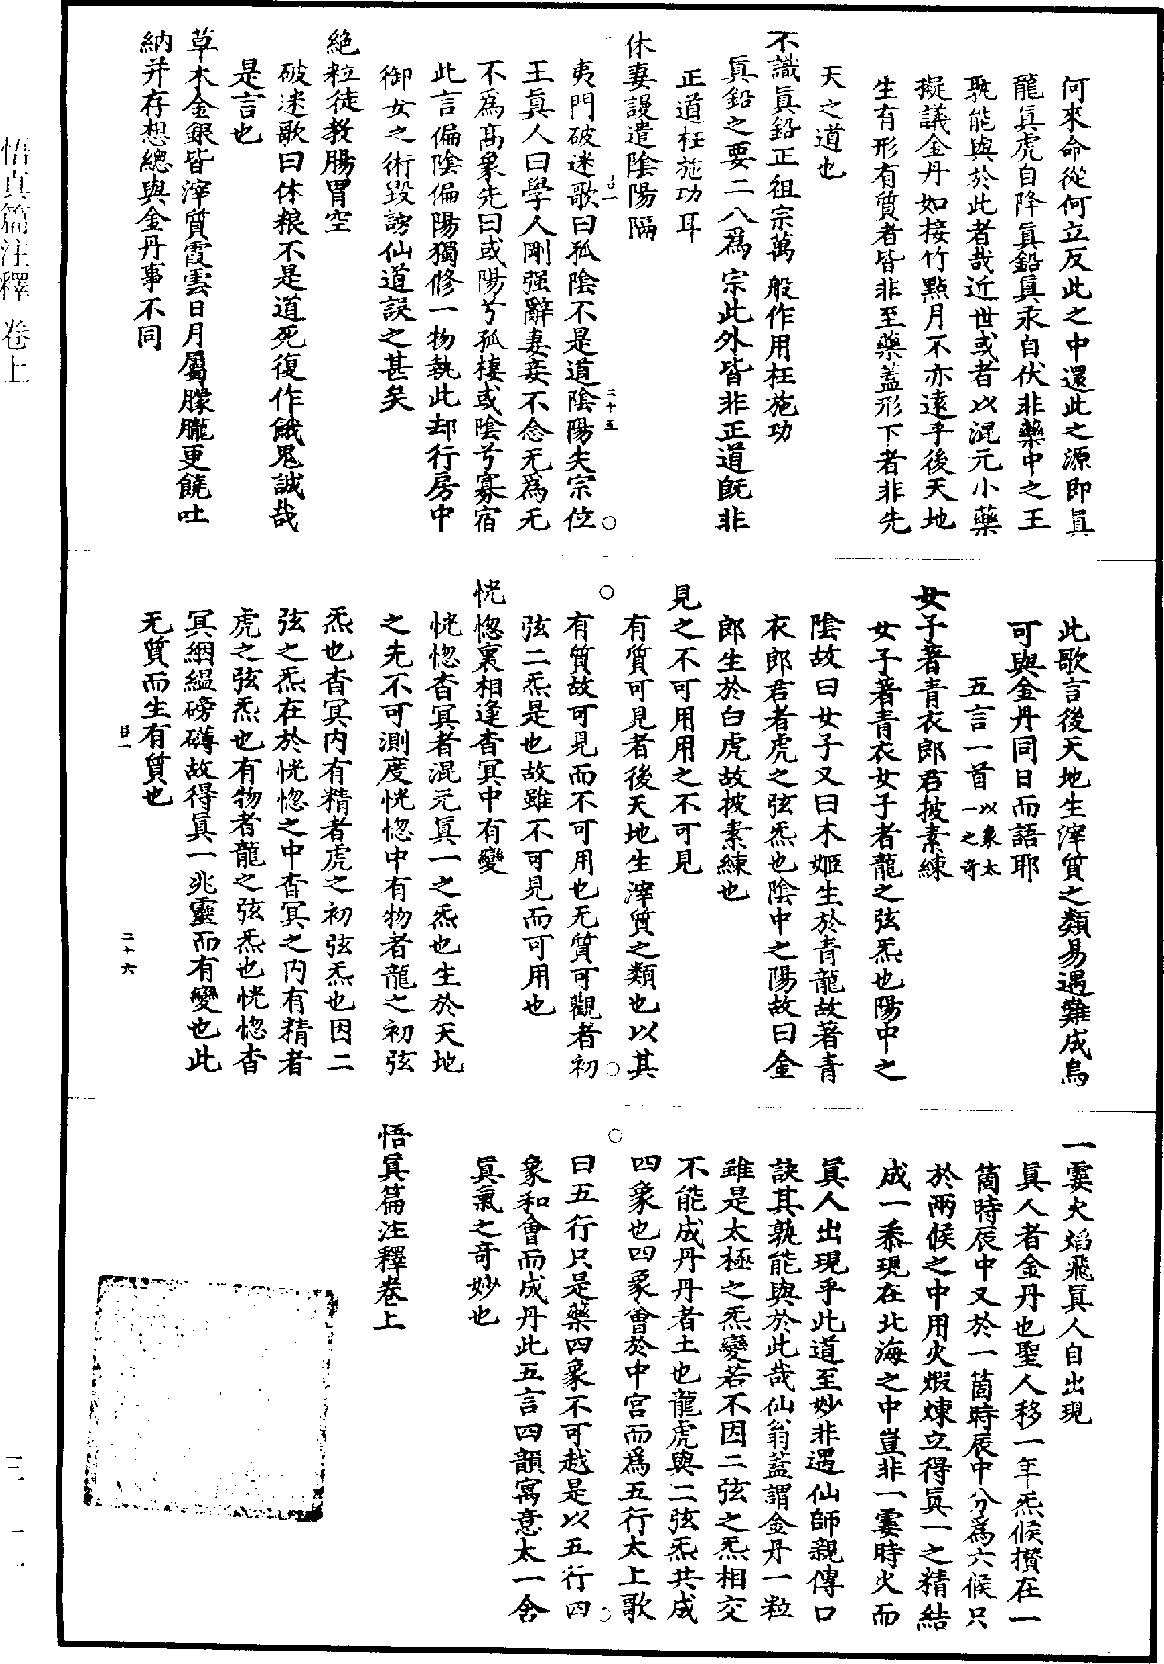 何來命從何立反此之中還此之源即眞
龍眞虎自降眞鉛眞汞自伏非藥中之王
孰能與於此者哉近世或者以混元小藥
擬議金丹如接竹點月不亦遠乎後天地
生有形有質者皆非至藥蓋形下者非先
天之道也
不識眞鉛正祖宗萬般作用枉施功
眞鉛之要二八爲宗此外皆非正道旣非
正道枉施功耳
休妻謾遣陰陽隔
夷門破迷歌曰孤陰不是道陰陽夫宗位
王眞人曰學人剛强辭妻妾不念无爲无
不爲髙象先曰或陽兮孤棲或陰兮寡宿
此言偏陰偏陽獨修一物執此却行房中
御女之術毀謗仙道誤之甚矣
絶粒徒教腸胃空
破迷歌曰休粮不是道死復作餓鬼誠哉
是言也
草木金銀皆滓質霞雲日月屬朦朧更饒吐
納并存想總與金丹事不同
此歌言後天地生滓質之類易遇難成烏
可與金丹同日而語耶
五言一首以象太一之奇
女子著青衣郎君披素練
女子著青衣女子者龍之弦炁也陽中之
陰故曰女子又曰木姬生於青龍故著青
衣郎君者虎之弦炁也陰中之陽故曰金
郎生於白虎故披素練也
見之不可用用之不可見
有質可見者後天地生滓質之類也以其
有質故可見而不可用也无質可觀者初
弦二炁是也故雖不可見而可用也
恍惚裏相逢杳冥中有變
恍惚杳冥者混元眞一之炁也生於天地
之先不可測度恍惚中有物者龍之初弦
炁也杳冥内有精者虎之初弦炁也因二
弦之炁在於恍惚之中杳冥之内有精者
虎之弦炁也有物者龍之弦炁也恍惚杳
冥絪緼磅礴故得眞一兆靈而有變也此
无質而生有質也
一霎火焰飛眞人自出現
眞人者金丹也聖人移一年炁候攢在一
箇時辰中又於一箇時辰中分爲六候只
於兩候之中用火煆煉立得眞一之精結
成一黍現在北海之中豈非一霎時火而
眞人出現乎此道至妙非遇仙師親傳口
訣其孰能與於此哉仙翁蓋謂金丹一粒
雖是太極之炁變若不因二弦之炁相交
不能成丹丹者土也龍虎與二弦炁共成
四象也四象會於中宮而爲五行太上歌
曰五行只是藥四象不可越是以五行四
象和會而成丹此五言四韻寓意太一含
眞氣之奇妙也
悟眞篇注釋卷上
悟真篇注釋 卷上
二十五
二十六